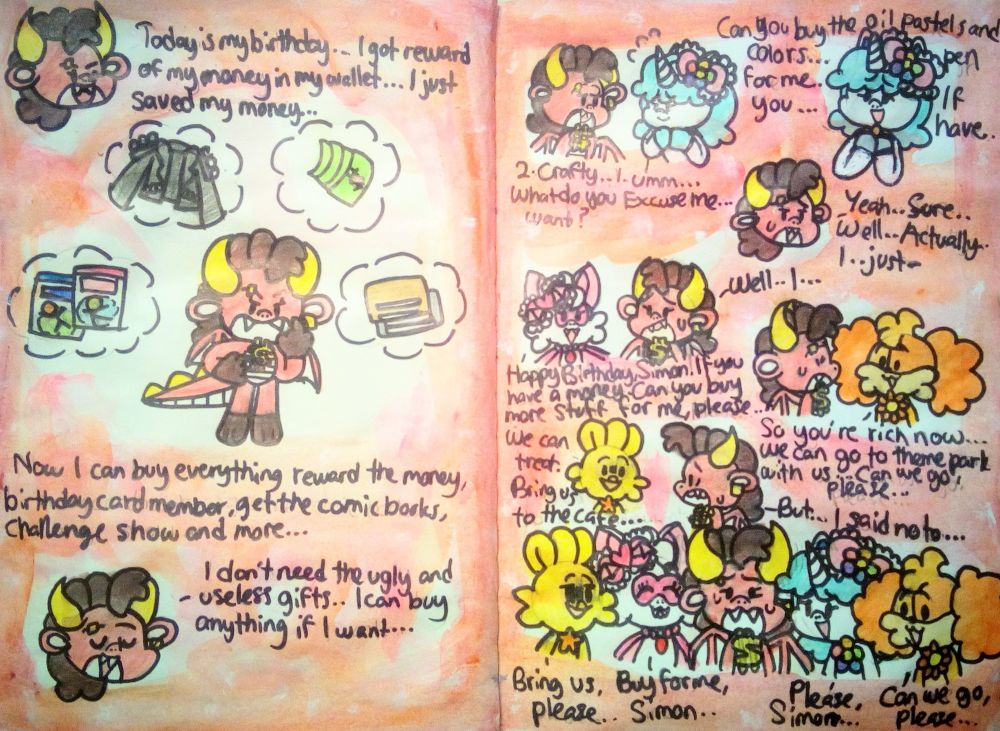 Today is my birthday... I got reward
of my money in my wallet... I just
saved my money...
Now I can buy everything reward the money,
birthday card member, get the comic books,
Challenge show and more...
I don't need the ugly and
useless gifts.. I can buy
anything if I want...
Can you buy the oil pastels and
colors... pen
for me.. If
you... have.
2. Crafty.. I.. umm...
What do you Excuse me...
want?
Yeah.. Sure..
Well.. Actually..
I.. just-
Well.. I...
Happy Birthday, Simon. If you
have a money. Can you buy
more stuff for me, please...
So you're rich now...
we can go to theme park
with us... Can we go,
please...
We can
treat.
Bring us
to the cafe...
But... I said no to...
Bring us,
please..
Buy for me,
Simon..
Please,
Simon...
Can we go,
please...
$